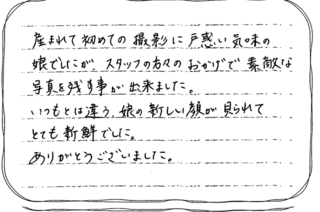 産まれて初めての撮影に戸惑い気味の
娘でしたが、スタッフの方々のおかげで素敵な
写真を残す事が出来ました。
いつもとは違う、娘の新しい顔が見られて
とても新鮮でした。
ありがとうございました。